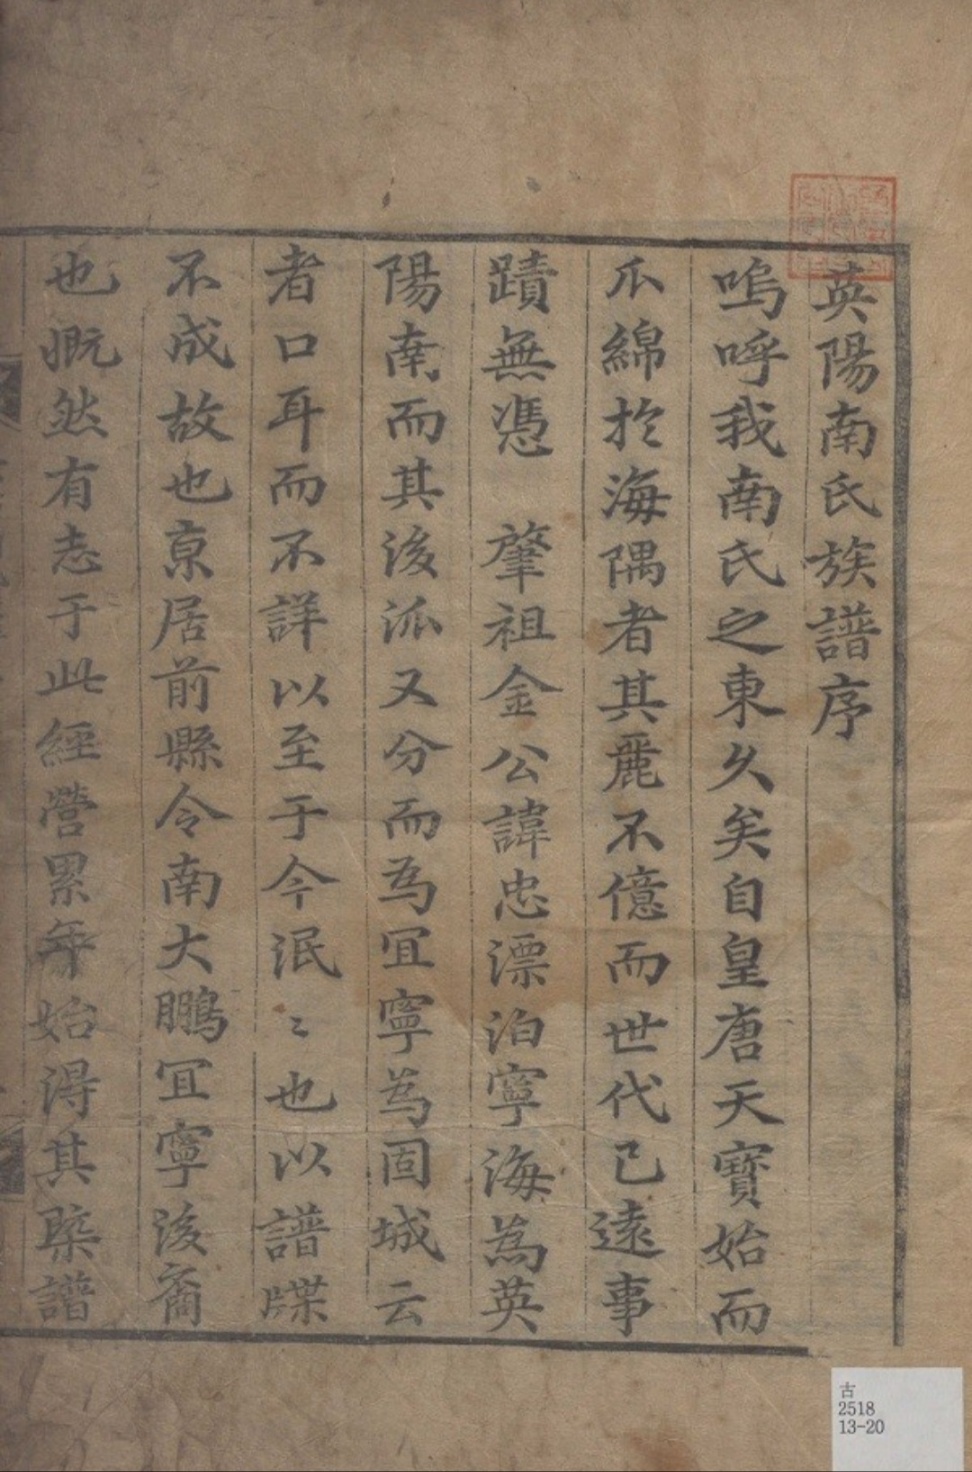 英陽南氏族譜序
嗚呼我南氏之東久矣自皇唐天寶始而
瓜綿於海隅者其麗不億而世代已遠事
蹟無憑 肇祖金公諱忠漂泊寧海為英
陽南而其後派又分而為冝寧為固城云
者口耳而不詳以至于今泯〻也以譜牒
不成故也京居前縣令南大鵬冝寧後裔
也慨然有志于此經營累年始得其槩譜
古
2518
13-20